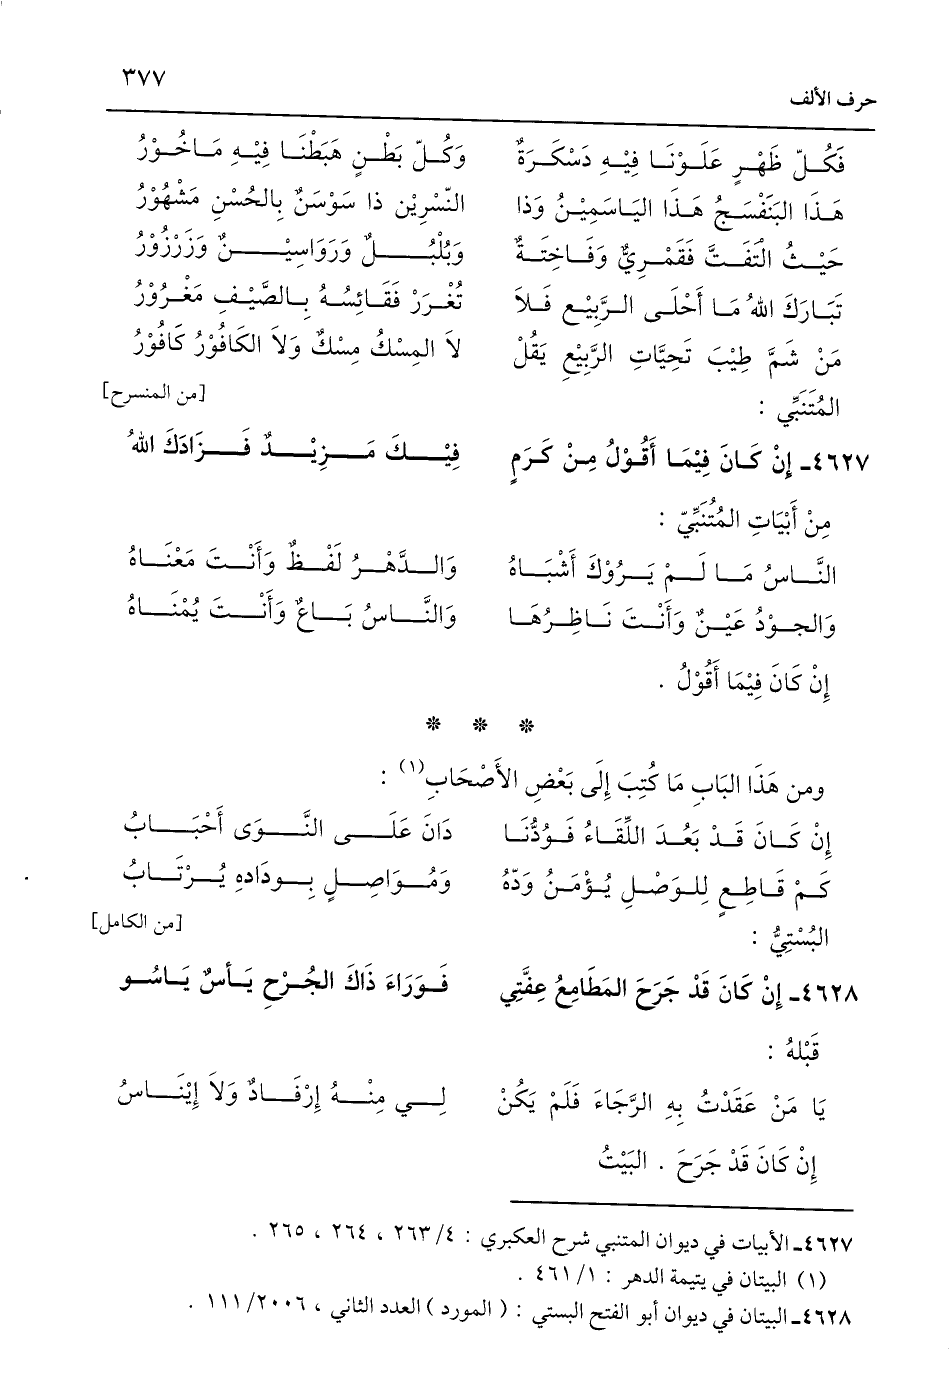 حرف الألف ٣٧٧
فَكُلّ ظَهْرٍ عَلَوْنَا فِيْهِ دَسْكَرَةٌ وَكُلّ بَطْنٍ هَبَطْنَا فِيْهِ مَاخُوْرُ
هَذَا البَنَفْسَجُ هَذَا اليَاسَمِيْنُ وَذَا النّسْرِيْن ذا سَوْسَنٌ بِالحُسْنِ مَشْهُوْرُ
حَيْثُ التَفَتَّ فَقُمْرِيٌّ وَفَاخِتَةٌ وَبُلْبُلٌ وَرَوَاسِيْنٌ وَزَرْزُوْرُ
تَبَارَكَ اللهُ مَا أَحْلَى الرَّبِيْعِ فَلاَ تُغْرَرْ فَقَائِسُهُ بِالصَّيْفِ مَغْرُوْرُ
مَنْ شَمَّ طِيْبَ تَحِيَّاتِ الرَّبِيْعِ يَقُلْ لاَ المِسْكُ مِسْكٌ وَلاَ الكَافُوْرُ كَافُوْرُ
المُتَنَبِّي : [من المنسرح]
٤٦٢٧ـ إِنْ كَانَ فِيْمَا أَقُوْلُ مِنْ كَرَمٍ فِيْكَ مَزِيْدٌ فَزَادَكَ اللهُ
مِنْ أَبْيَاتِ المُتَنَبِّيّ :
النَّاسُ مَا لَمْ يَرُوْكَ أَشْبَاهُ وَالدَّهْرُ لَفْظٌ وَأَنْتَ مَعْنَاهُ
وَالجوْدُ عَيْنٌ وَأَنْتَ نَاظِرُهَا وَالنَّاسُ بَاعٌ وَأَنْتَ يُمْنَاهُ
إِنْ كَانَ فِيْمَا أَقُوْلُ .
* * *
ومن هَذَا البَابِ مَا كُتِبَ إِلَى بَعْضِ الأَصْحَابِ(١) :
إِنْ كَانَ قَدْ بَعُدَ اللِّقَاءُ فَوُدُّنَا دَانَ عَلَى النَّوَى أَحْبَابُ
كَمْ قَاطِعٍ لِلوَصْلِ يُؤْمَنُ وَدّهُ وَمُوَاصِلٍ بِودَادِهِ يُرْتَابُ
البُسْتِيُّ : [من الكامل]
٤٦٢٨ـ إِنْ كَانَ قَدْ جَرَحَ المَطَامِعُ عِفَّتِي فَوَرَاءَ ذَاكَ الجُرْحِ يَأْسٌ يَاسُو
قَبْلهُ :
يَا مَنْ عَقَدْتُ بِهِ الرَّجَاءَ فَلَمْ يَكُنْ لِي مِنْهُ إِرْفَادٌ وَلاَ إِيْنَاسُ
إِنْ كَانَ قَدْ جَرَحَ . البَيْتُ
٤٦٢٧ـ الأبيات في ديوان المتنبي شرح العكبري : ٤/ ٢٦٣ ، ٢٦٤ ، ٢٦٥ .
(١) البيتان في يتيمة الدهر : ١/ ٤٦١ .
٤٦٢٨ـ البيتان في ديوان أبو الفتح البستي : ( المورد ) العدد الثاني ، ٢٠٠٦/ ١١١ .